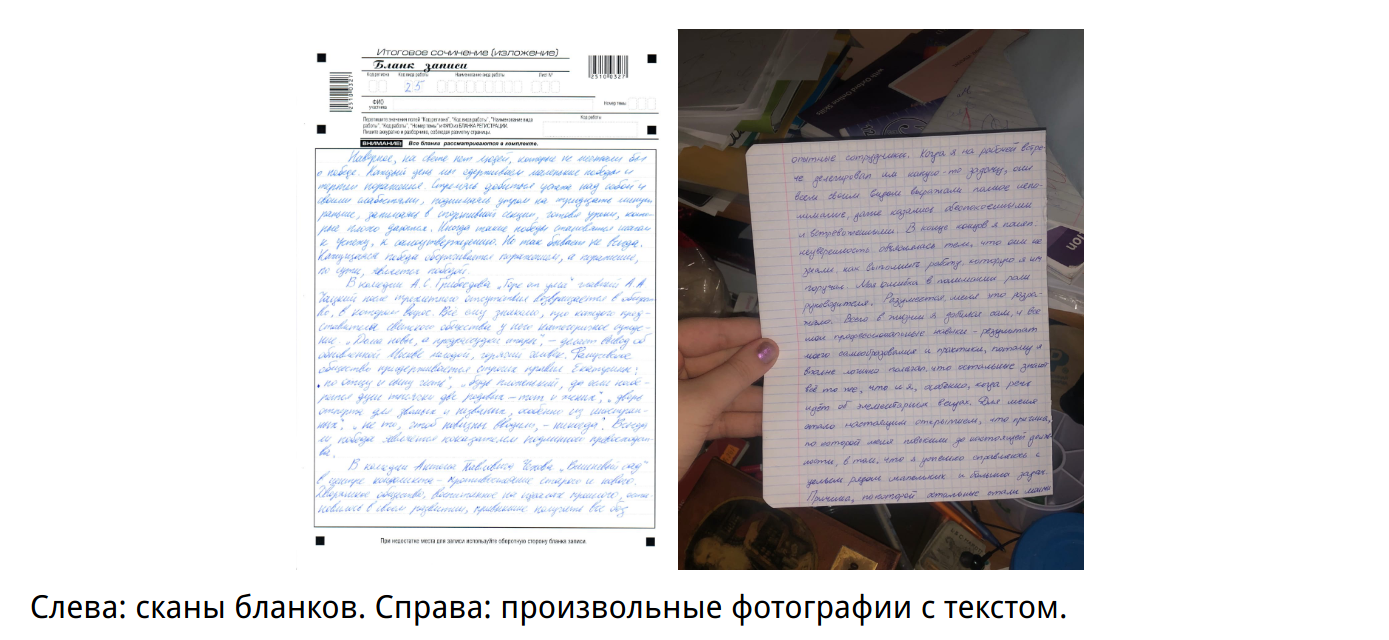 Итоговое сочинение (изложение)
Бланк записи
Код региона Код вида работы Наименование вида работы Лист №
25
2510 0327
2510 0327
ФИО участника
Номер темы
Перепишите значения полей "Код региона", "Код вида работы", "Наименование вида
работы", "Код работы", "Номер темы" и ФИО из БЛАНКА РЕГИСТРАЦИИ.
Пишите аккуратно и разборчиво, соблюдая разметку страницы.
Код работы
ВНИМАНИЕ! Все бланки рассматриваются в комплекте.
Наверное, на свете нет людей, которые не мечтали бы
о победе. Каждый день мы одерживаем маленькие победы и
терпим поражения. Стремясь добиться успеха над собой и
своими слабостями, поднимаясь утром на тридцать минут
раньше, занимаясь в спортивной секции, готовя уроки, кото-
рые плохо даются. Иногда такие победы становятся шагом
к успеху, к самоутверждению. Но так бывает не всегда.
Кажущаяся победа оборачивается поражением, а поражение,
по сути, является победой.
В комедии А.С. Грибоедова „Горе от ума" главный А.А.
Чацкий после трехлетнего отсутствия возвращается в общест-
во, в котором вырос. Всё ему знакомо, про каждого пред-
ставителя светского общества у него категоричное сужде-
ние. „Дома новы, а предрассудки стары", – делает вывод об
обновлённой Москве молодой, горячий человек. Фамусовское
общество придерживается строгих правил Екатерины:
„по отцу и сыну честь", „будь плохенький, да если набе-
рётся душ тысячки две родовых – тот и жених", „дверь
отперта для званых и незваных, особенно из иностран-
ных", „не то, чтоб новизны вводили, – никогда". Всегда
ли победа является показателем подлинного превосходст-
ва.
В комедии Антона Павловича Чехова „Вишнёвый сад"
в центре конфликта – противостояние старого и нового.
Дворянское общество, воспитанное на идеалах прошлого, оста-
новилось в своём развитии, привыкшее получать всё без
При недостатке места для записи используйте оборотную сторону бланка записи
опытные сотрудники. Когда я на рабочей встре-
че делегировал им какую-то задачу, они
всем своим видом выражали полное непо-
нимание, даже казались обеспокоенными
и встревоженными. В конце концов я понял:
неуверенность объяснялась тем, что они не
знали, как выполнить работу, которую я им
поручил. Моя ошибка в понимании роли
руководителя. Разумеется, меня это
Всего в жизни я добился сам, и все
мои профессиональные навыки – результат
моего самообразования и практики, поэтому я
вполне логично полагал, что остальные знают
всё то же, что и я, особенно, когда речь
идёт об элементарных вещах. Для меня
стало настоящим открытием, что причина,
по которой меня повысили до настоящей долж-
ности, в том, что я успешно справляюсь с
целым рядом маленьких и больших задач.
Причина, по которой остальные стали моими
Слева: сканы бланков. Справа: произвольные фотографии с текстом.